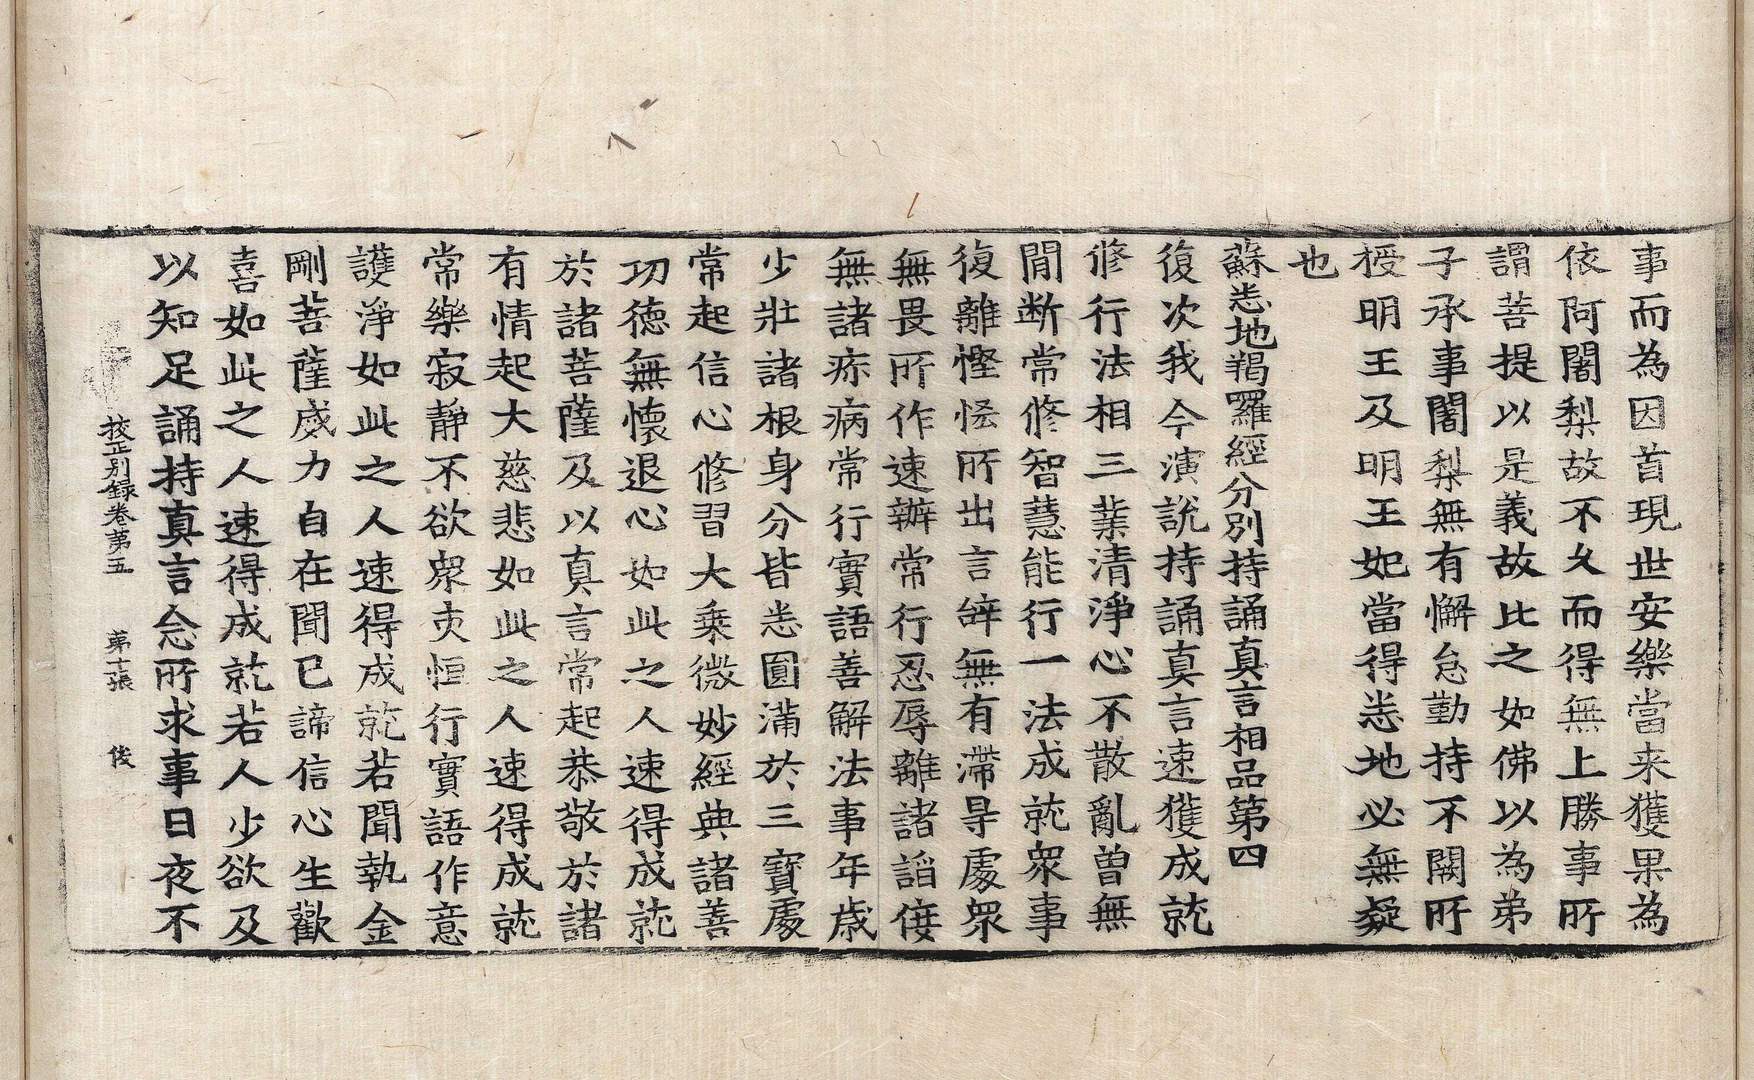 事而為因首現世安樂當来獲果為
依阿闍梨故不久而得無上勝事所
謂菩提以是義故比之如佛以為弟
子承事闍梨無有懈怠勤持不闕所
授明王及明王妃當得悉地必無疑
也
蘇悉地羯羅經分別持誦真言相品第四
復次我今演說持誦真言速獲成就
修行法相三業清淨心不散亂曽無
間断常修智慧能行一法成就衆事
復離慳恡所出言辝無有滯㝵處衆
無畏所作速辦常行忍辱離諸諂侫
無諸疹病常行實語善解法事年歳
少壯諸根身分皆悉圓滿於三寶處
常起信心修習大乗微妙經典諸善
功徳無懷退心如此之人速得成就
於諸菩薩及以真言常起恭敬於諸
有情起大慈悲如此之人速得成就
常樂寂静不欲衆夾恒行實語作意
護淨如此之人速得成就若聞執金
剛菩薩威力自在聞已諦信心生歡
喜如此之人速得成就若人少欲及
以知足誦持真言念所求事日夜不
校正別録卷第五 第十張 俊